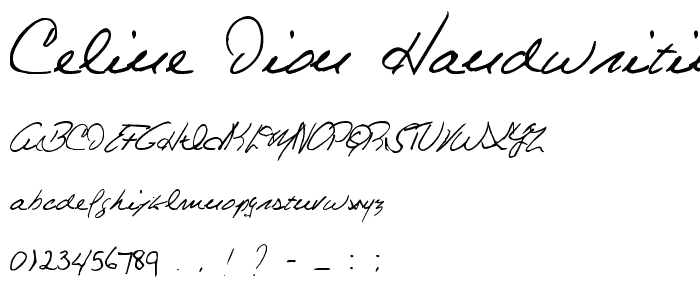 Celine Dion Handwriti
ABCDEFGHIJKLMNOPQRSTUVWXYZ
abcdefghijklmnopqrstuvwxyz
0123456789 . , ! ? - _ : ;